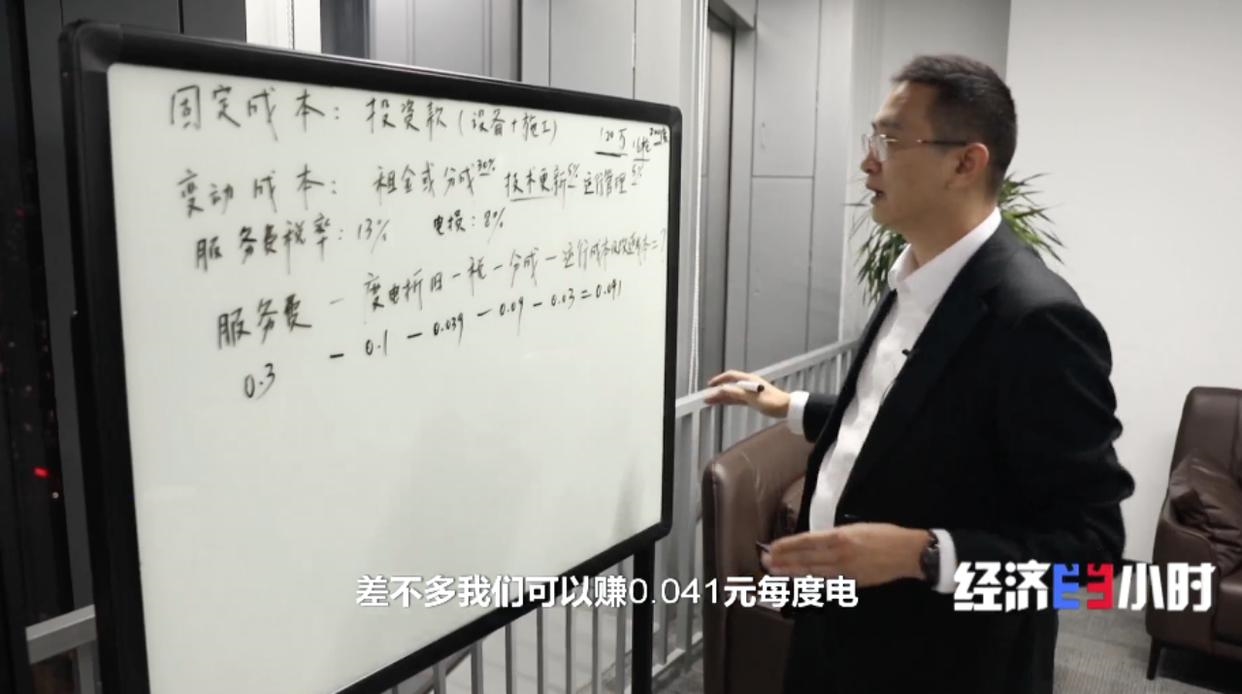 固定成本：投资款（设备+施工）
120万 16枪
变动成本：租金或分成30% 技术更新5% 运行管理5%
服务费税率：13% 电损：8%
服务费 - 度电折旧 - 税 - 分成 - 运行成本 = ?
0.3 - 0.1 - 0.039 - 0.09 - 0.03 = 0.041
差不多我们可以赚0.041元每度电
经济半小时